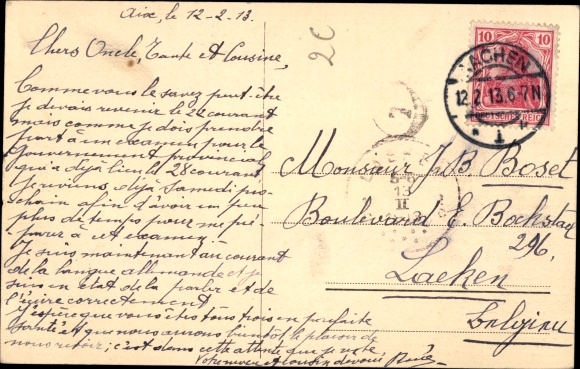 Aix, le 12-2-13.
Chers Oncle, Tante et Cousine,
Comme vous le savez peut-être
je devais revenir le 22 courant
mais comme je dois prendre
part à un examen pour le
Gouvernement provincial
qui a déjà lieu le 28 courant
je reviens déjà samedi pro-
chain afin d'avoir un peu
plus de temps pour me pré-
parer à cet examen.
Je suis maintenant au courant
de la langue allemande et je
suis en état de la parler et de
l'écrire correctement
J'espère que vous êtes tous trois en parfaite
santé et que nous aurons bientôt le plaisir de
nous revoir; c'est dans cette attente que je reste,
Votre neveu et cousin dévoué René
2C
10 10
DEUTSCHES REICH
AACHEN
12.2.13.6-7N
1
2
13
II
Monsieur J.B. Boset
Boulevard E. Bockstael
296,
Laeken
Belgique